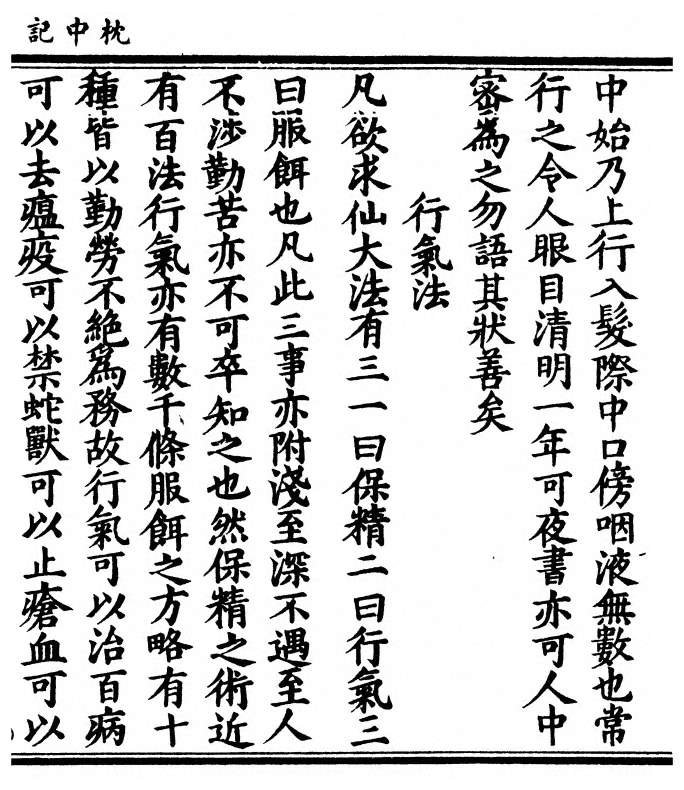 枕中記
中始乃上行入髮際中口傍咽液無數也常
行之令人眼目清明一年可夜書亦可人中
密為之勿語其狀善矣
行氣法
凡欲求仙大法有三一曰保精二曰行氣三
曰服餌也凡此三事亦附淺至深不遇至人
不涉勤苦亦不可卒知之也然保精之術近
有百法行氣亦有數千條服餌之方略有十
種皆以勤勞不絕為務故行氣可以治百病
可以去瘟疫可以禁蛇獸可以止瘡血可以